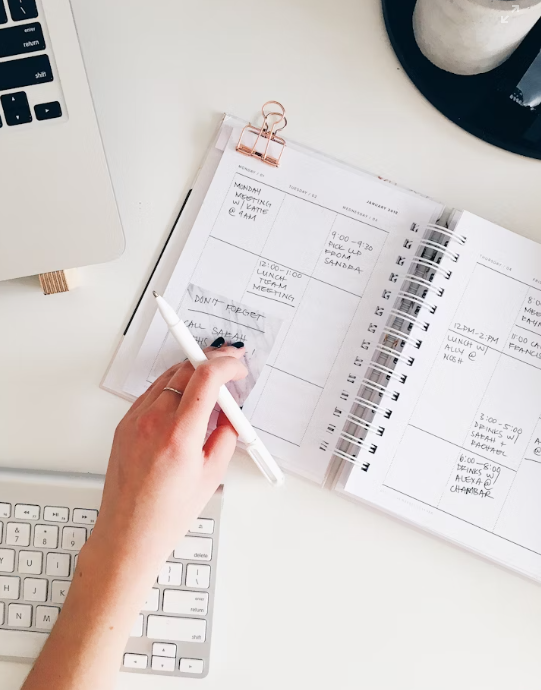 enter
return
shift
MONDAY | 01
MONDAY
MEETING
W/ KATIE
@ 9AM
TUESDAY | 02
12:00-1:00
LUNCH
TEAM
MEETING
WEDNESDAY | 03
JANUARY 2018
9:00-9:30
PICK UP
FROM
SANDRA
DON'T FORGET
CALL SARAH
THURSDAY
12PM-2PM
LUNCH W/
ALLY @
NOSH
3:00-5:00
DRINKS W/
SARAH +
RACHAEL
6:00-8:00
DRINKS W/
ALEXA @
CHAMBAR
&
7
*
8
(
9
Y
U
I
H
J
K
N
M
delete
enter
return
shift